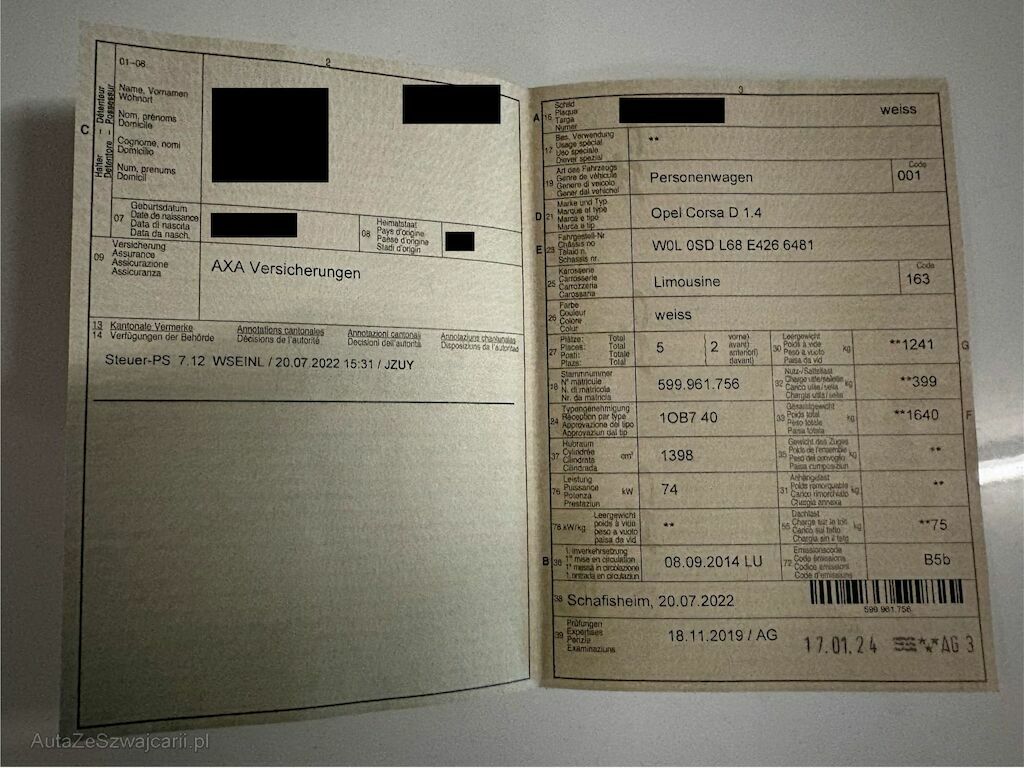 01-06
2
C
Halter – Détenteur
Detentore – Possessur
Name, Vornamen
Wohnort
Nom, prénoms
Domicile
Cognome, nomi
Domicilio
Num, prenums
Domicil
07
Geburtsdatum
Date de naissance
Data di nascita
Data da nasch.
08
Heimatstaat
Pays d'origine
Paese d'origine
Stadi d'origin
09
Versicherung
Assurance
Assicurazione
Assicuranza
AXA Versicherungen
13
14
Kantonale Vermerke
Verfügungen der Behörde
Annotations cantonales
Décisions de l'autorité
Annotazioni cantonali
Decisioni dell'autorità
Annotaziuns chantunalas
Disposiziuns da l'autoritad
Steuer-PS 7.12 WSEINL / 20.07.2022 15:31 / JZUY
3
A
Schild
Plaque
Targa
Numer
weiss
17
Bes. Verwendung
Usage spécial
Uso speciale
Diever spezial
**
19
Art des Fahrzeugs
Genre de véhicule
Genere di veicolo
Gener dal vehichel
Personenwagen
Code
001
D
21
Marke und Typ
Marque et type
Marca e tipo
Marca e tip
Opel Corsa D 1.4
E
23
Fahrgestell-Nr.
Châssis no
Telaio n.
Schassis nr.
W0L 0SD L68 E426 6481
25
Karosserie
Carrosserie
Carrozzeria
Carossaria
Limousine
Code
163
26
Farbe
Couleur
Colore
Colur
weiss
27
Plätze: Total
Places: Total
Posti: Totale
Plazs: Total
5
2
vorne)
avant)
anteriori)
davant)
30
Leergewicht
Poids à vide
Peso a vuoto
Paisa da vid
kg
**1241
G
18
Stammnummer
N° matricule
N. di matricola
Nr. da matricla
599.961.756
32
Nutz-/Sattellast
Charge utile/sellette
Carico utile/sella
Chargia utila/sella
kg
**399
24
Typengenehmigung
Réception par type
Approvazione del tipo
Approvaziun dal tip
1OB7 40
33
Gesamtgewicht
Poids total
Peso totale
Paisa totala
kg
**1640
F
37
Hubraum
Cylindrée
Cilindrata
Cilindrada
cm³
1398
35
Gewicht des Zuges
Poids de l'ensemble
Peso del convoglio
Paisa cumposiziun
kg
**
76
Leistung
Puissance
Potenza
Prestaziun
kW
74
31
Anhängelast
Poids remorquable
Carico rimorchiato
Chargia annexa
kg
**
78 kW/kg
Leergewicht
poids à vide
peso a vuoto
paisa da vid
**
55
Dachlast
Charge sur le toit
Carico sul tetto
Chargia sin il tetg
kg
**75
B
36
1. Inverkehrsetzung
1re mise en circulation
1a messa in circolazione
1. entrada en circulaziun
08.09.2014 LU
72
Emissionscode
Code émissions
Codice emissioni
Code d'emissiuns
B5b
38
Schafisheim, 20.07.2022
599.961.756
39
Prüfungen
Expertises
Perizie
Examinaziuns
18.11.2019 / AG
17.01.24
AG 3
AutaZeSzwajcarii.pl